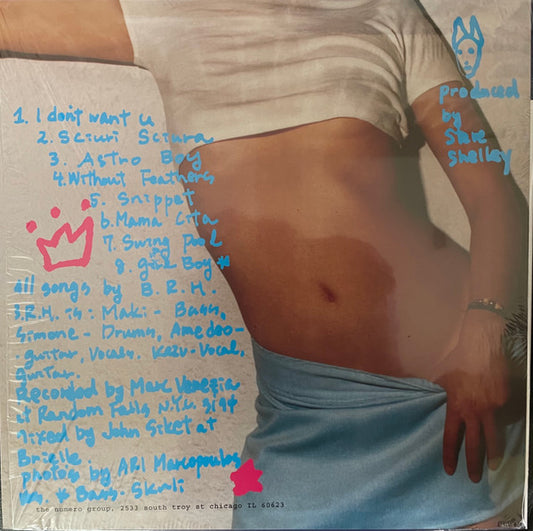 produced
by
Steve
Shelley
1. I don't want u
2. Sciuri Sciura
3. Astro Boy
4. Without Feathers
5. Snippet
6. Mama Cita
7. Swing Pool
8. girl Boy *
All songs by B.R.H.
B.R.H. is: Maki - Bass,
Simone - Drums, Amedeo -
guitar, Vocals. Kazu - Vocal,
guitar.
Recorded by Marc Venezia
at Random Falls N.Y.C.
Mixed by John Siket at
Brielle
photos by ARI Marcopoulos
* Bass - Skuli
the numero group, 2533 south troy st chicago IL 60623